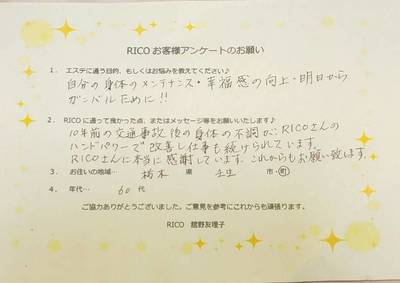 RICO お客様アンケートのお願い
1. エステに通う目的、もしくはお悩みを教えてください♪
自分の身体のメンテナンス・幸福感の向上・明日から
ガンバルために!!
2. RICOに通って良かった点、またはメッセージ等をお願いいたします♪
10年前の交通事故後の身体の不調がRICOさんの
ハンドパワーで改善し仕事も続けられています。
RICOさんに本当に感謝しています。これからもお願い致します。
3. お住いの地域… 栃木 県 壬生 市・町
4. 年代… 60 代
ご協力ありがとうございました。ご意見を参考にこれからも頑張ります。
RICO 舘野友理子